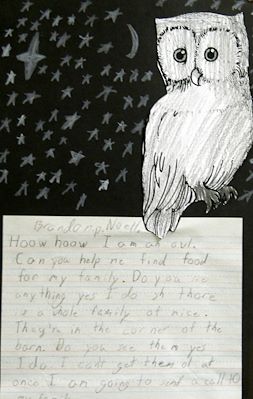 Brandon p. Noell
Hoow hoow I am an owl.
Can you help me find food
for my family. Do you see
any thing yes I do sh there
is a whole family of mice.
They'r in the corner of the
barn. Do you see them yes
I do. I can't get them all at
once I am going to sent a call to
my